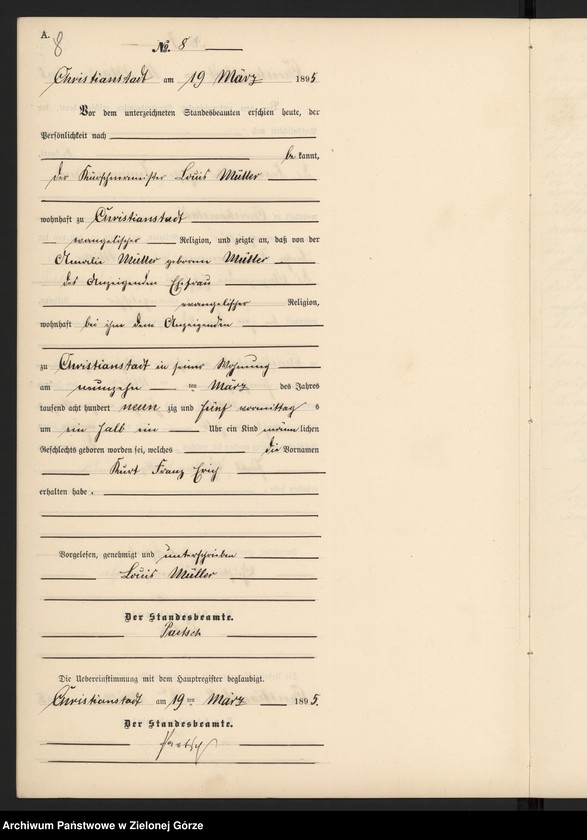 A.
8
No. 8
Christianstadt am 19 März 1895
Vor dem unterzeichneten Standesbeamten erschien heute, der
Persönlichkeit nach
be kannt,
der Kürschnermeister Louis Müller
wohnhaft zu Christianstadt
evangelischer Religion, und zeigte an, daß von der
Amalie Müller geborene Müller
des Anzeigenden Ehefrau
evangelischer Religion,
wohnhaft bei ihm dem Anzeigenden
zu Christianstadt in seiner Wohnung
am neunzehn ten März des Jahres
tausend acht hundert neun zig und fünf vormittag s
um ein halb ein Uhr ein Kind männ lichen
Geschlechts geboren worden sei, welches die Vornamen
Kurt Franz Erich
erhalten habe.
Vorgelesen, genehmigt und unterschrieben
Louis Müller
Der Standesbeamte.
Paetsch
Die Uebereinstimmung mit dem Hauptregister beglaubigt.
Christianstadt am 19 ten März 1895.
Der Standesbeamte.
Paetsch
Archiwum Państwowe w Zielonej Górze